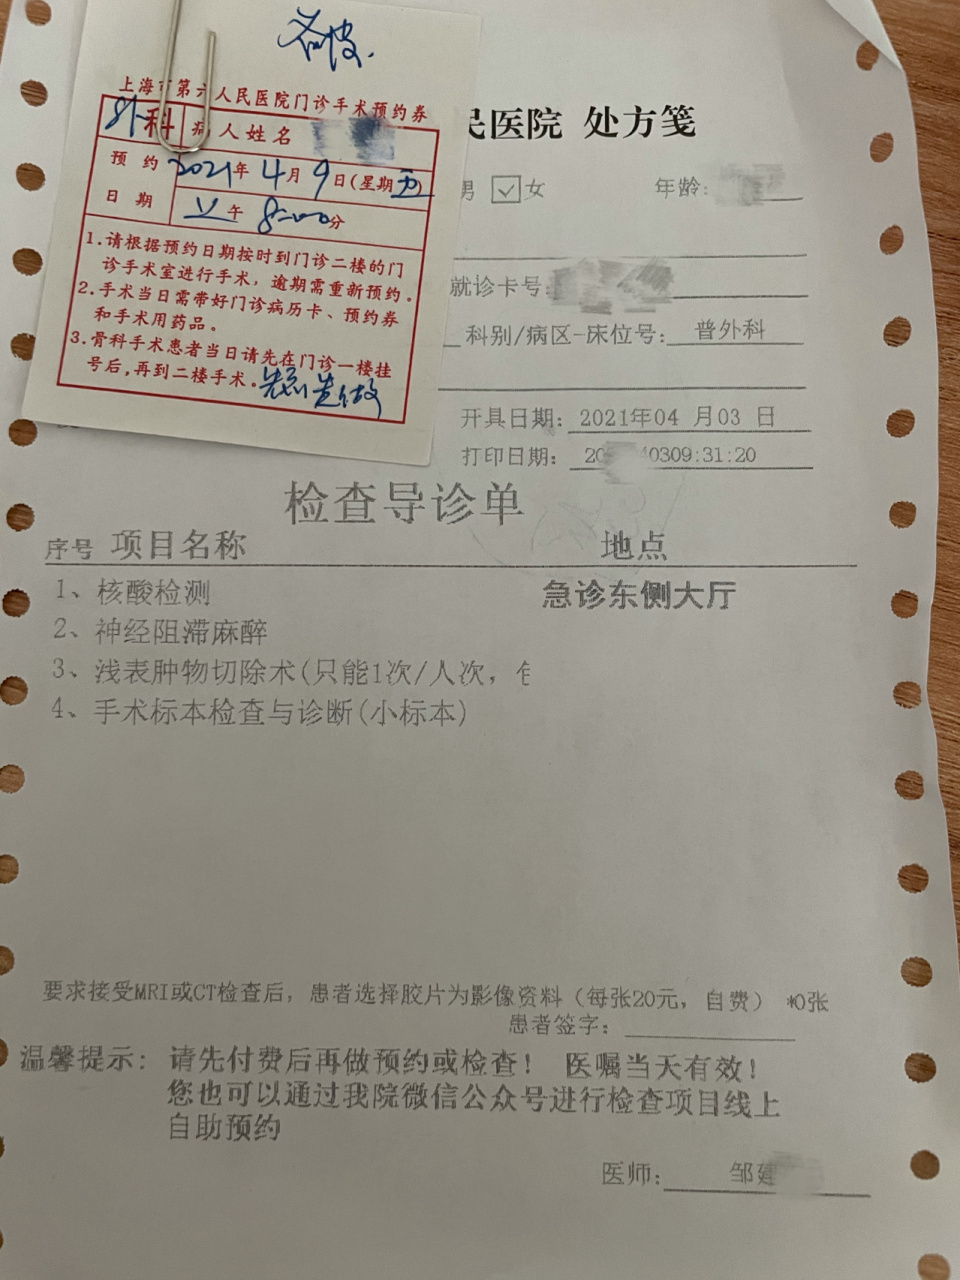 上海市第六人民医院门诊手术预约券
外科 病人姓名
预约日期
2021年4月9日(星期五)
上午8:00分
1.请根据预约日期按时到门诊二楼的门
诊手术室进行手术，逾期需重新预约。
2.手术当日需带好门诊病历卡、预约券
和手术用药品。
3.骨科手术患者当日请先在门诊一楼挂
号后,再到二楼手术。
民医院 处方笺
男 ☑女 年龄:
就诊卡号:
科别/病区-床位号: 普外科
开具日期: 2021年04 月03 日
打印日期: 20 0309:31:20
检查导诊单
序号 项目名称 地点
1、核酸检测 急诊东侧大厅
2、神经阻滞麻醉
3、浅表肿物切除术(只能1次/人次，
4、手术标本检查与诊断(小标本)
要求接受MRI或CT检查后，患者选择胶片为影像资料（每张20元，自费） *0张
患者签字:
温馨提示: 请先付费后再做预约或检查! 医嘱当天有效!
您也可以通过我院微信公众号进行检查项目线上
自助预约
医师: 邹建